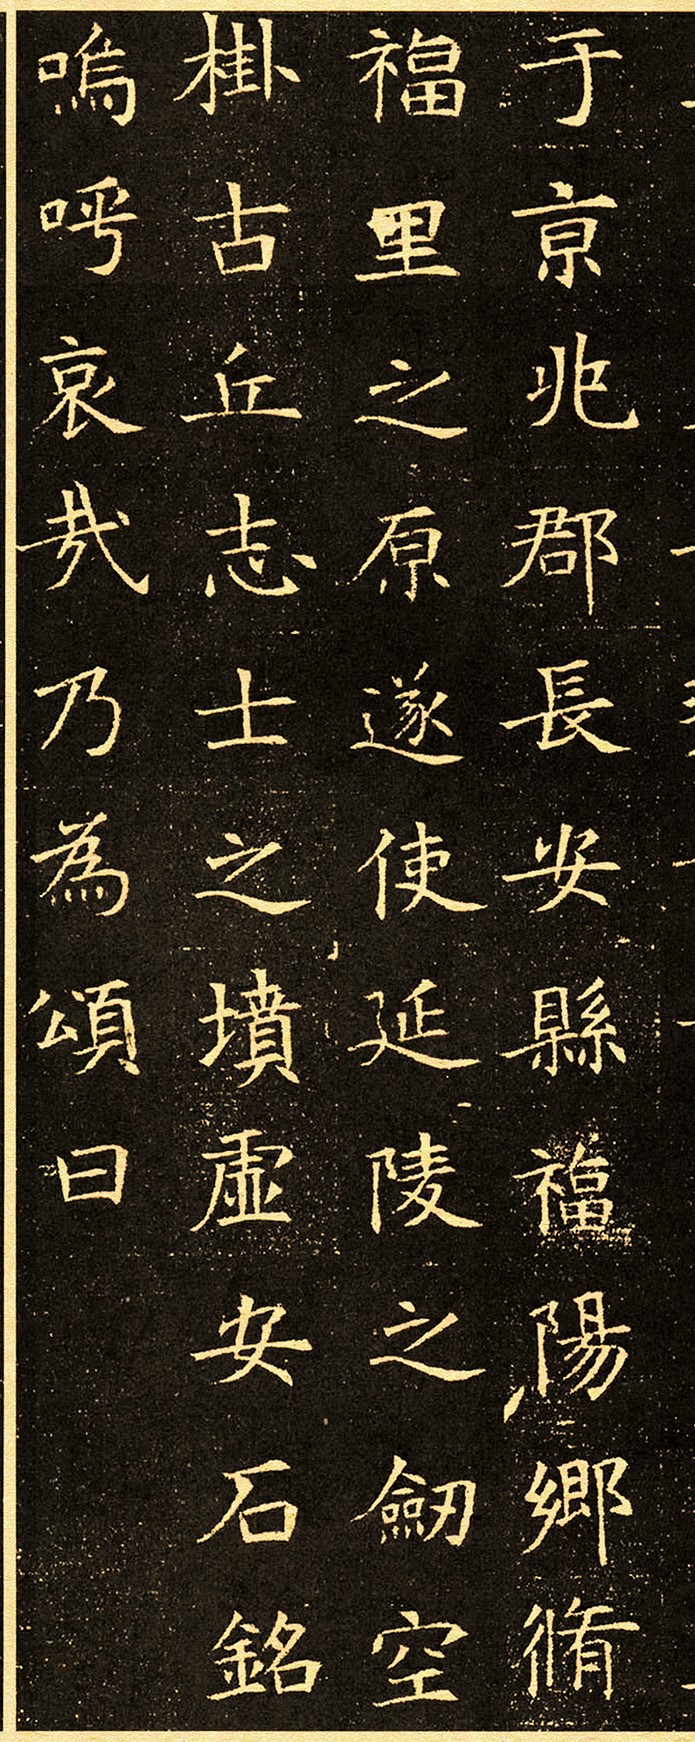 于京兆郡長安縣福陽鄉脩
福里之原遂使延陵之劒空
掛古丘志士之墳虛安石銘
嗚呼哀哉乃為頌曰